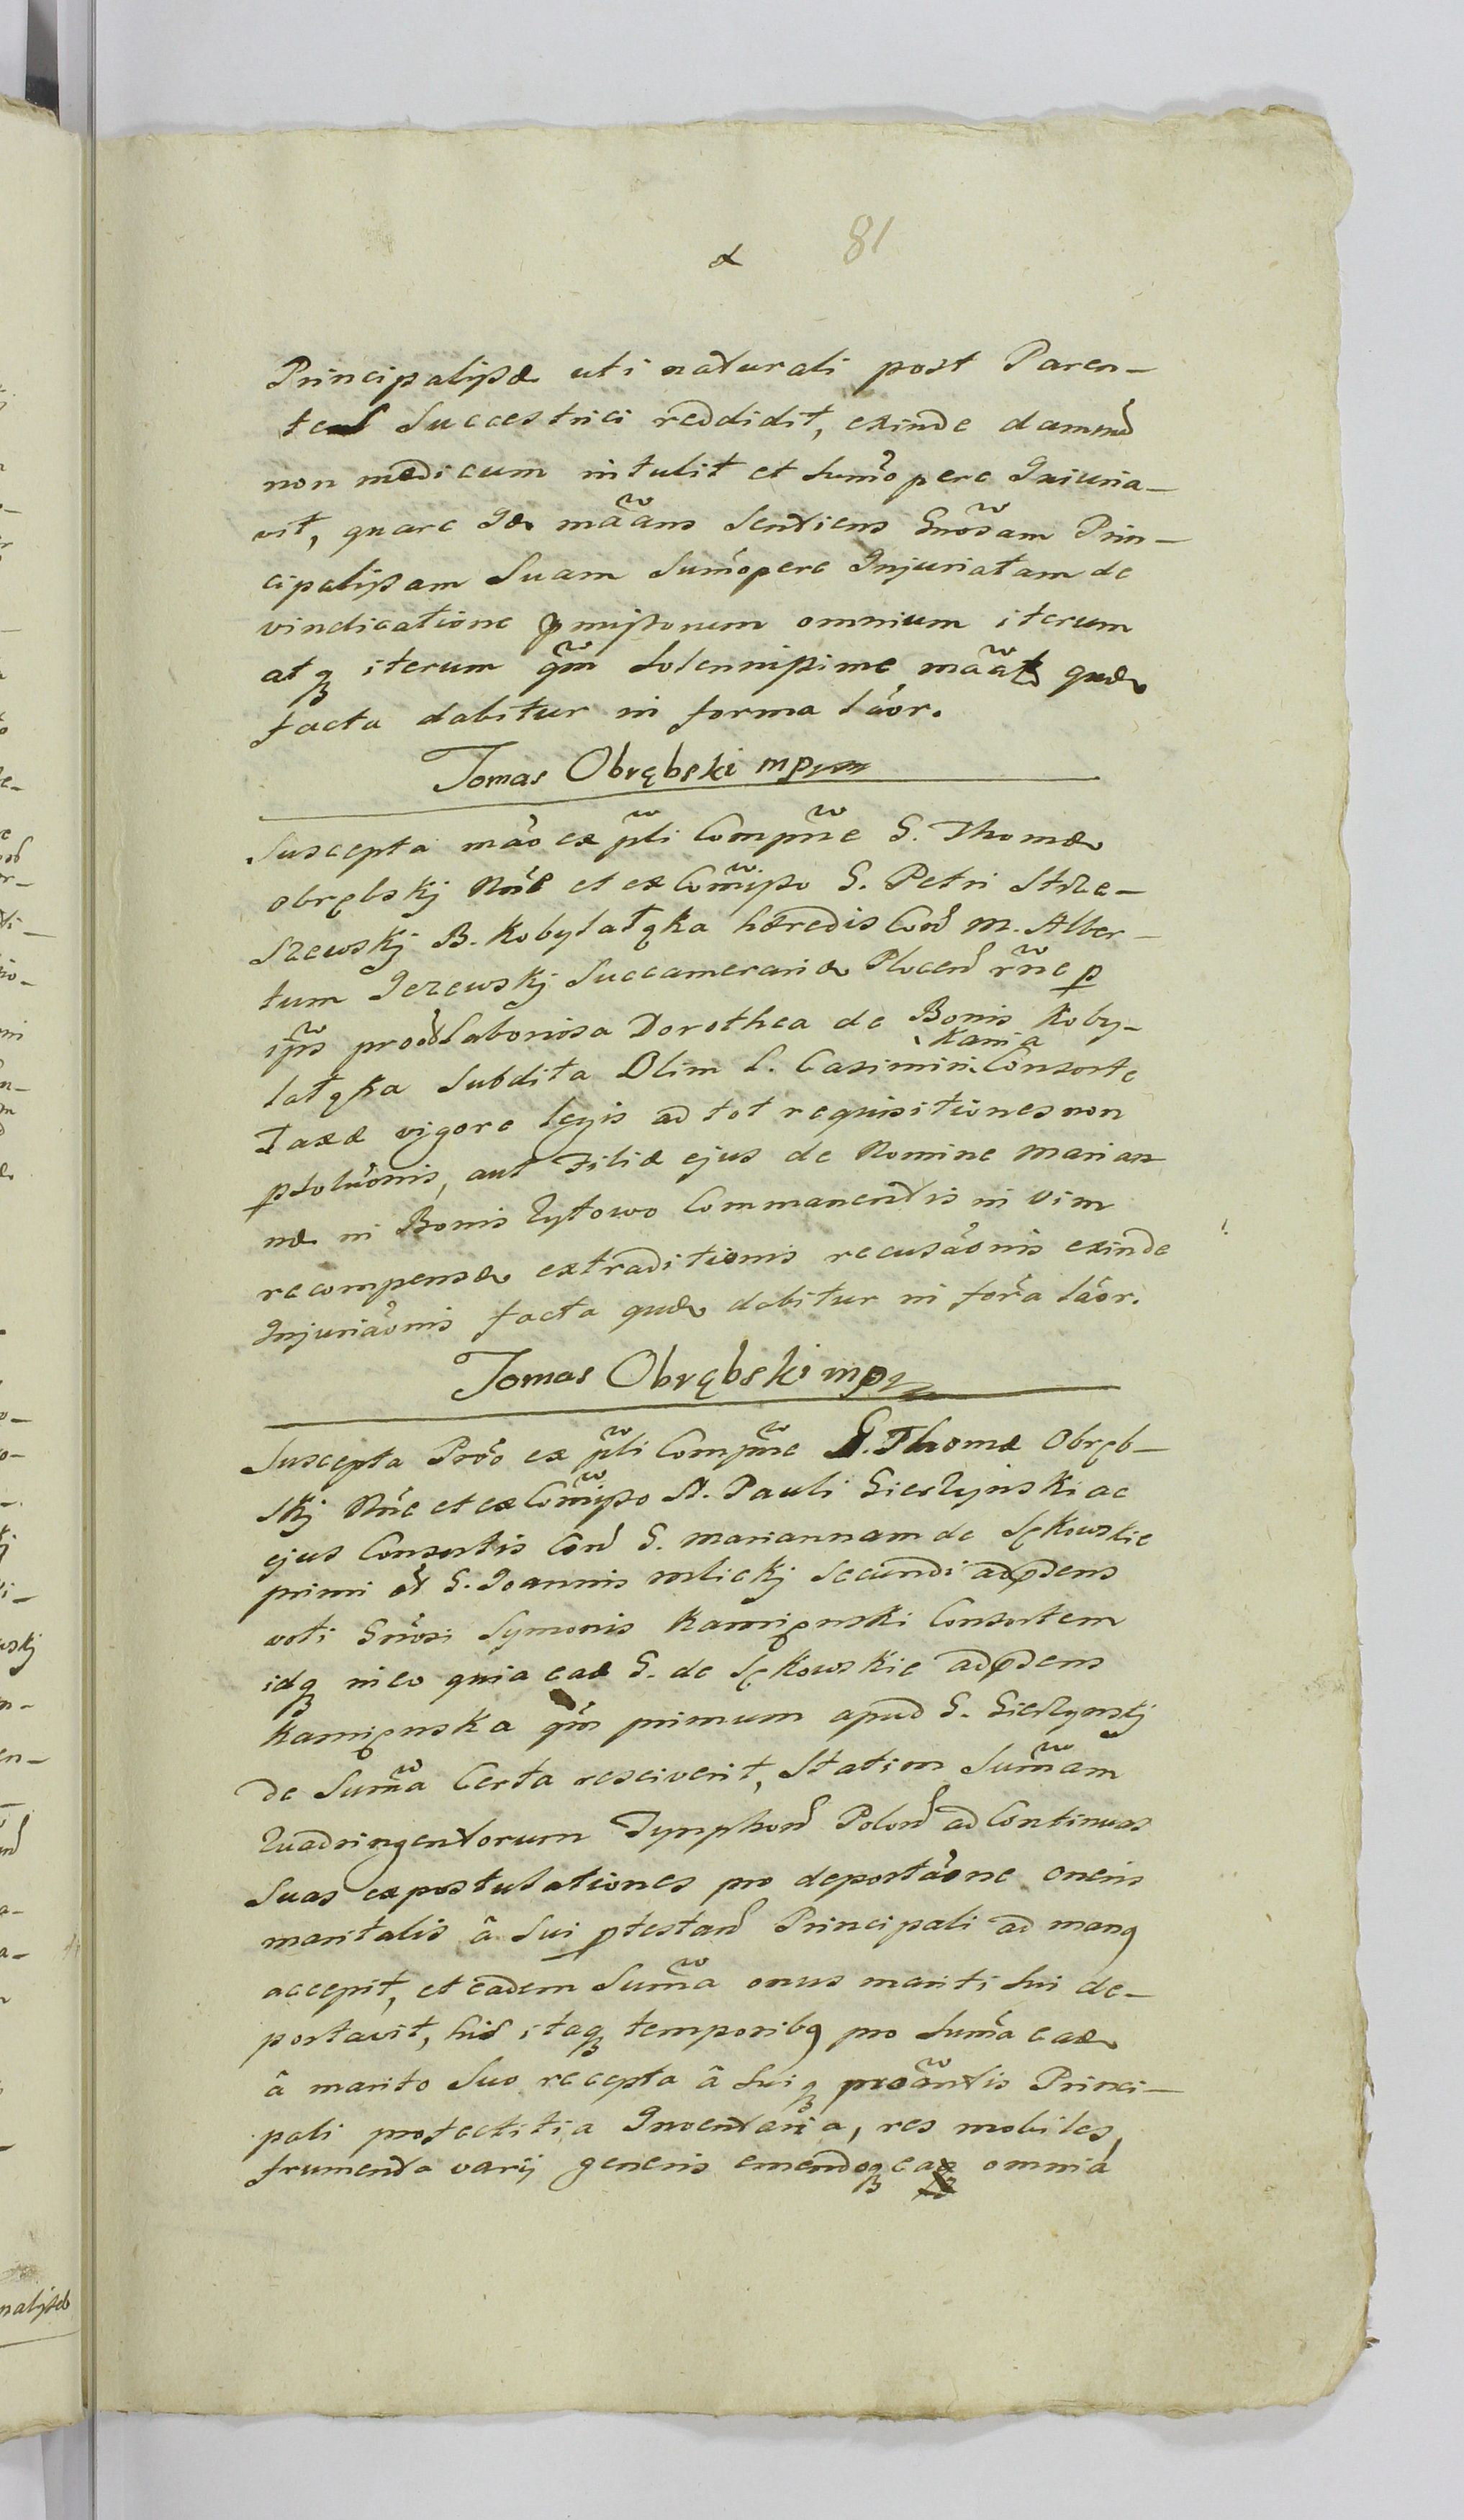 81
Principalissæ uti naturali post Paren-
tes Successtrici reddidit, exinde damnū
non modicum intulit et sum̃opere Iniuria-
vit, quare Id mãans sentiens Gnõsam Prin-
cipalissam Suam Sum̃opere Injuriatam de
vindicatione pmissorum omnium iterum
atq iterum qm̃ Solennissime mãat quæ
facta dabitur in forma lãor.
Tomas Obrębski mp
Suscepta mão ex pli Compñe G. Thomæ
Obrębskj Nñe et ex Com̃isso G. Petri Strze-
szewskj B. Kobylatqka hæredis Con͂ M. Alber-
tum Jezewskj Succamerariæ Plocen͂ rñe p
ip̃s proõ Laboriosa Dorothea de Bonis Koby-
latqka Subdita Olim L. Casimiri Kania Consorte
Taxæ vigore legis ad tot requisitiones non
psolũonis, aut Filiæ ejus de Nomine Marian
næ in Bonis Zytowo Commanentis in vim
recompensæ extraditionis recusãonis exinde
Injuriãonis facta quæ dabitur in form̃a lãor.
Tomas Obrębski mp
Suscepta Prõo ex pli Compñe G. Thomæ Obręb-
skj Nñe et ex Com̃isso N. Pauli Gieslzynski ac
ejus Consortis Con͂ G. Mariannam de Sękowskie
primi et G. Joannis Mlickj Secundi adpsens
voti Gnõsi Symonis Kamięnski Consortem
idq in eo quia eað G. de Sękowskie adpsens
Kamięnska qm̃ primum apud G. Gieslzynskj
de Sum̃a Certa resciverit, Statim Sum̃am
Quadringentorum Tynphon͂ Polon͂ ad Continuas
Suas expostulationes pro deportãone oneris
maritalis â Sui ptestan͂ Principali ad manq
accepit, et eadem Sum̃a onus mariti Sui de-
portavit, his itaq temporibq pro Sum̃a eað
â marito Suo recepta â Suiq proãntis Princi-
pali profectitia Inventaria, res mobiles,
frumenta varij generis emendoq eaq omnia